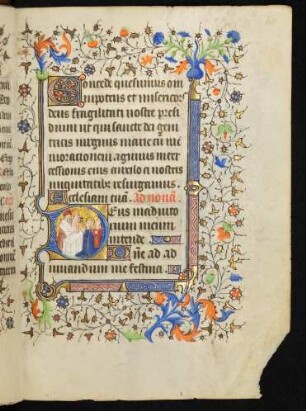 Concede quesumus om
nipotens et misericors
deus fragilitati nostre presi
dium ut qui sancte dei geni
tricis virginis marie
moracionem agimus inter
cessionis eius auxilio a nostris
iniquitatibz resurgamus.
Ecclesiam tuã. Ad nonã.
Deus in adiuto
rium meum
intende
Dñe ad ad
iuuandum me festina.